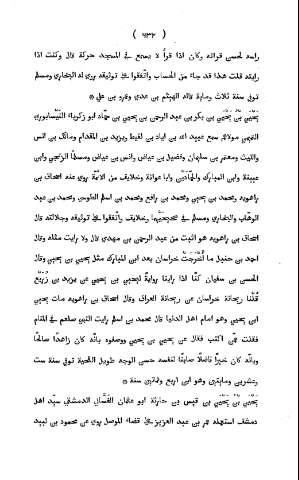 ( ٦٣٢ )
راسه لحسن قراته وكان اذا قرأ لا يسمع في المسجد حركة قال وكنت اذا
رايته قلت هذا قد جاء من الحساب واتفقوا على توثيقه روى له البخارى ومسلم
توفى سنة ثلاث وماية قاله الهيثم بن عدى وغيره بن على ۞
يحيى بن يحيى بن بكر بن عبد الرحمن بن يحيى بن حماد ابو زكرياء النيسابورى
التميمى مولاهم سمع عبيد الله بن اياد بن لقيط ويزيد بن المقدام ومالك بن انس
والليث ومعتمر بن سليمان وفضيل بن عياض وانس بن عياض ومسلما الزنجى وابن
عيينة وابن المبارك والحمادين وابا عوانة وخلايق من الائمة روى عنه اسحاق بن
راهويه ومحمد بن يحيى ومحمد بن رافع ومحمد بن اسلم الطوسى ومحمد بن عبد
الوهاب والبخارى ومسلم في صحيحيهما وخلايق واتفقوا على توثيقه وجلالته قال
اسحاق بن راهويه هو اثبت من عبد الرحمن بن مهدى قال ولا رايت مثله وقال
احمد بن حنبل ما اخرجت خراسان بعد ابن المبارك مثل يحيى بن يحيى وقال
الحسن بن سفيان كنا اذا راينا رواية ليحيى بن يحيى عن يزيد بن زريع
قلنا ريحانة خراسان عن ريحانة العراق وقال اسحاق بن راهويه مات يحيى
ابن يحيى وهو امام اهل الدنيا قال محمد بن اسلم رايت النبى صلعم في المنام
فقلت عمن اكتب فقال عن يحيى بن يحيى ووصفوه بانه كان زاهدا صالحا
وبانه كان خيرا فاضلا صاينا لنفسه حسن الوجه طويل اللحية توفى سنة ست
وعشرين ومايتين وهو ابن اربع وثمانين سنة ۞
يحيى بن يحيى بن قيس بن حارثة ابو عثمان الغسانى الدمشقى سيد اهل
دمشق استعمله عمر بن عبد العزيز على قضاء الموصل روى عن محمود بن لبيد